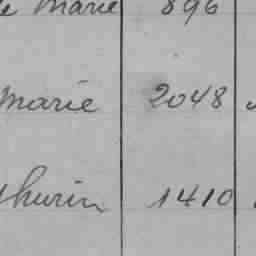 Marie 896
Marie 2048
thurin 1410